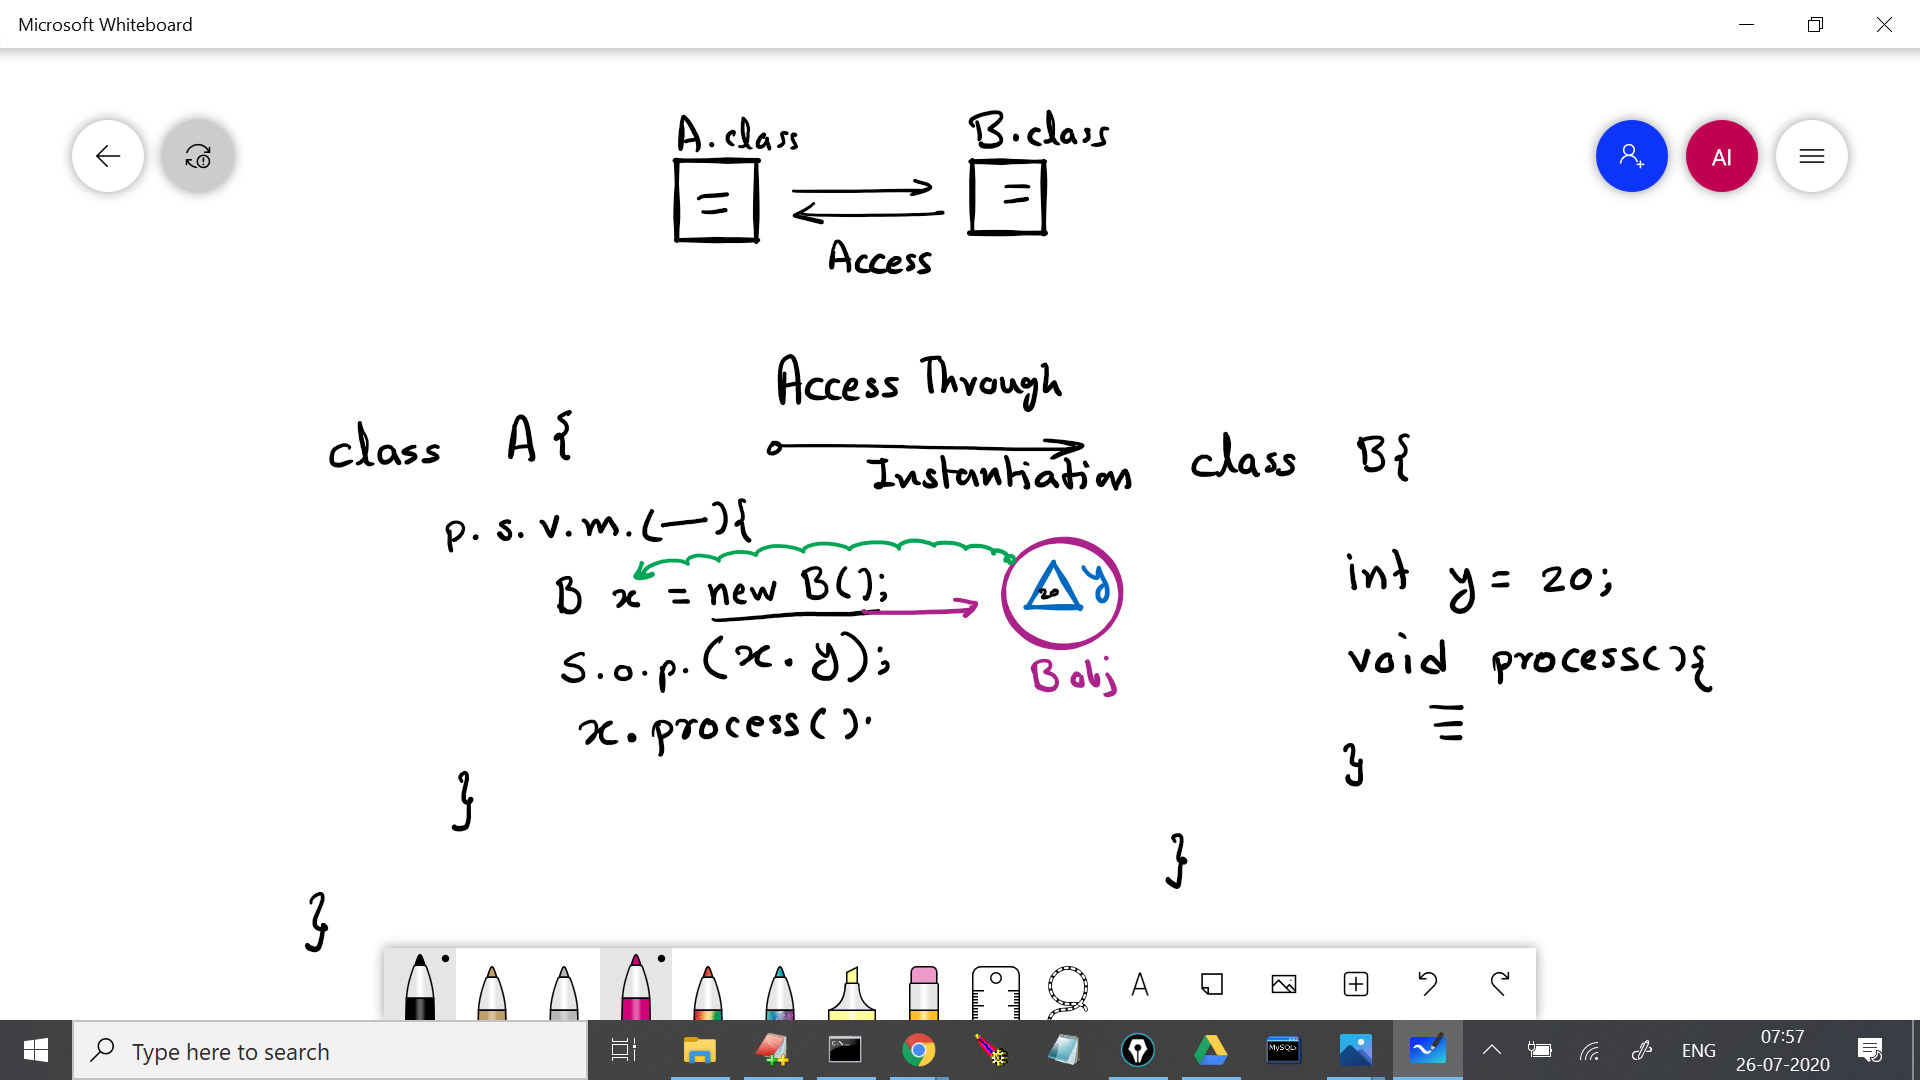 Microsoft Whiteboard
A.class
B.class
=
=
Access
AI
Access Through
Instantiation
class A{
p. s. v. m. (—){
B x = new B();
S.o.p. (x.y);
x.process().
}
}
20 y
B obj
class B{
int y = 20;
void process(){
≡
}
}
A
Type here to search
C:\
MySQL
ENG
07:57
26-07-2020